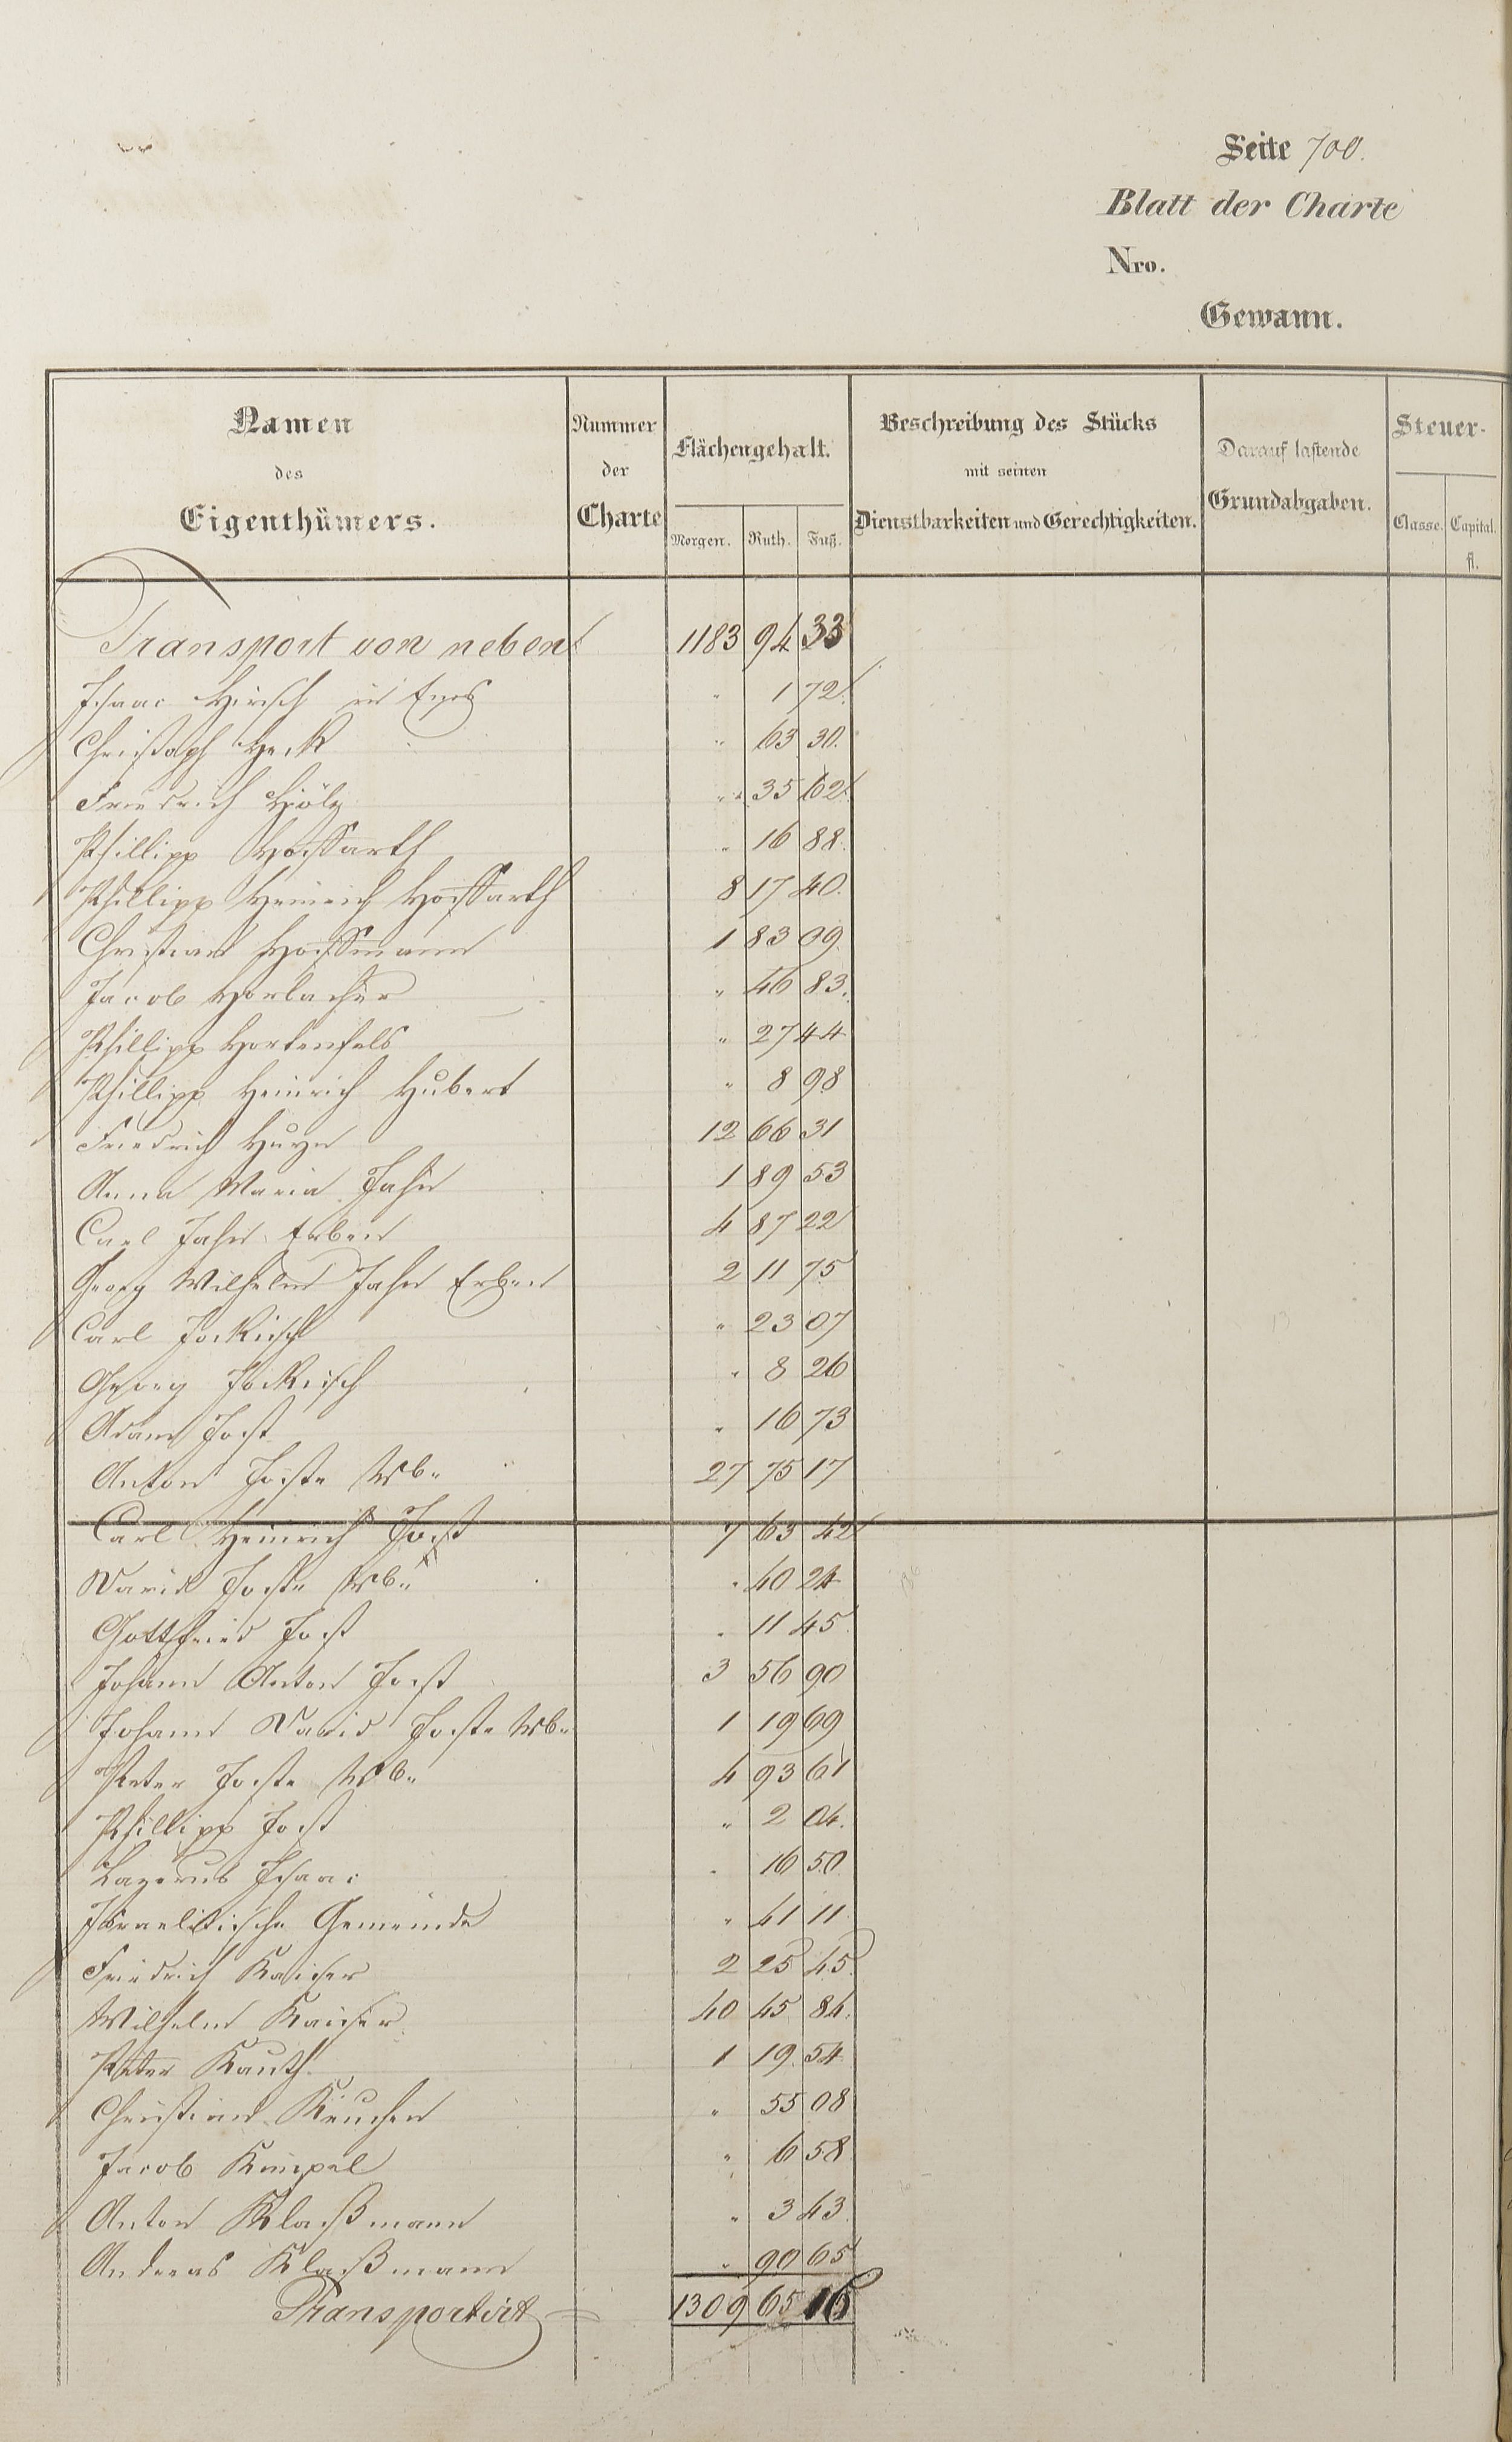 Seite 700.
Blatt der Charte
Nro.
Gewann.
Namen des Eigenthümers. Nummer der Charte Flächengehalt. Morgen. Ruth. Fuß. Beschreibung des Stücks mit seinen Dienstbarkeiten und Gerechtigkeiten. Darauf lastende Grundabgaben. Steuer- Classe. Capital. fl.
Transport von neben 1183 94 33
Isaac Hirsch in " 1 72.
Christoph Heck " 63 30.
Friedrich Hölz " 35 62.
Phillipp Hoffarth " 16 88.
Phillipp Heinrich Hoffarth 8 17 40.
Christian Hoffmann 1 83 09.
Jacob Horlacher " 46 83.
Phillipp Hortenfels " 27 44
Phillipp Heinrich Hubert " 8 98
Friedrich Huyn 12 66 31
Anna Maria Jahn 1 89 53
Carl Jahn Erben 4 87 22
Georg Wilhelm Jahn Erben 2 11 75
Carl Jockisch " 23 07
Georg Jockisch " 8 26
Adam Jost " 16 73
Anton Joste Wb. 27 75 17
Carl Heinrich Jost 7 63 42
David Joste Wb. " 40 24
Gottfried Jost " 11 45
Johann Anton Jost 3 56 90
Johann David Joste Wb. 1 19 69
Peter Joste Wb. 4 93 61
Phillipp Jost " 2 04.
Lazarus Isaac " 16 50
Israelitische Gemeinde " 41 11
Friedrich Kaiser 2 25 45
Wilhelm Kaiser 40 45 84.
Peter Kauth 1 19 54
Christian Keuchen " 55 08
Jacob Kimpel " 6 58
Anton Klaßmann " 3 43
Andreas Klaßmann " 90 65
Transportirt 1309 65 16